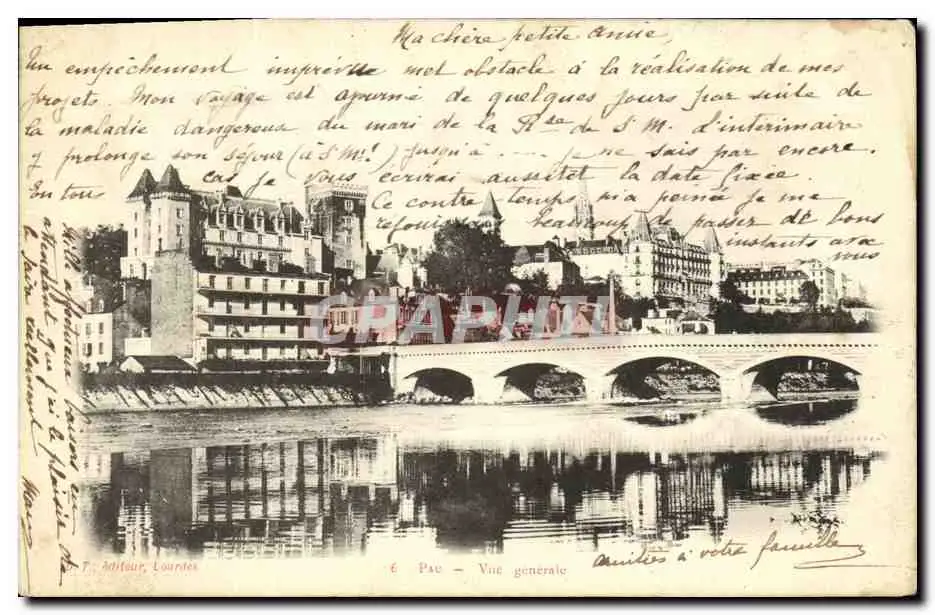 Ma chère petite amie,
Un empêchement imprévu met obstacle à la réalisation de mes
projets. Mon voyage est ajourné de quelques jours par suite de
la maladie dangereuse du mari de la Rde de S. M. L'interimaire
y prolonge son séjour (à St M!) jusqu'à .... je ne sais pas encore.
En tout cas je vous écrirai aussitôt la date fixée.
Ce contre temps m'a peinée je me
réjouissais beaucoup de passer de bons
instants avec
vous
Mille affectueux baisers en
attendant que j'ai le plaisir de
le faire réellement
Amitiés à votre famille
CPARAMA
T., éditeur, Lourdes
6 PAU — Vue générale